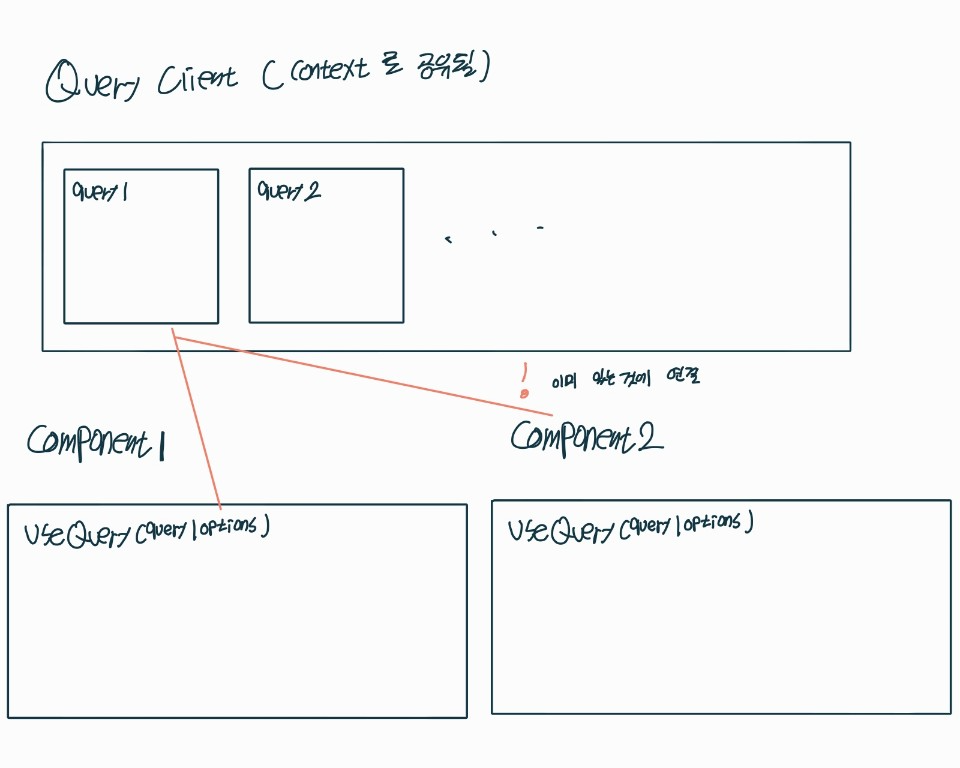 Query Client (Context 로 공유될)
query1
query2
! 이미 있는것에 연결
Component1
Component2
useQuery(query1options)
useQuery(query1options)